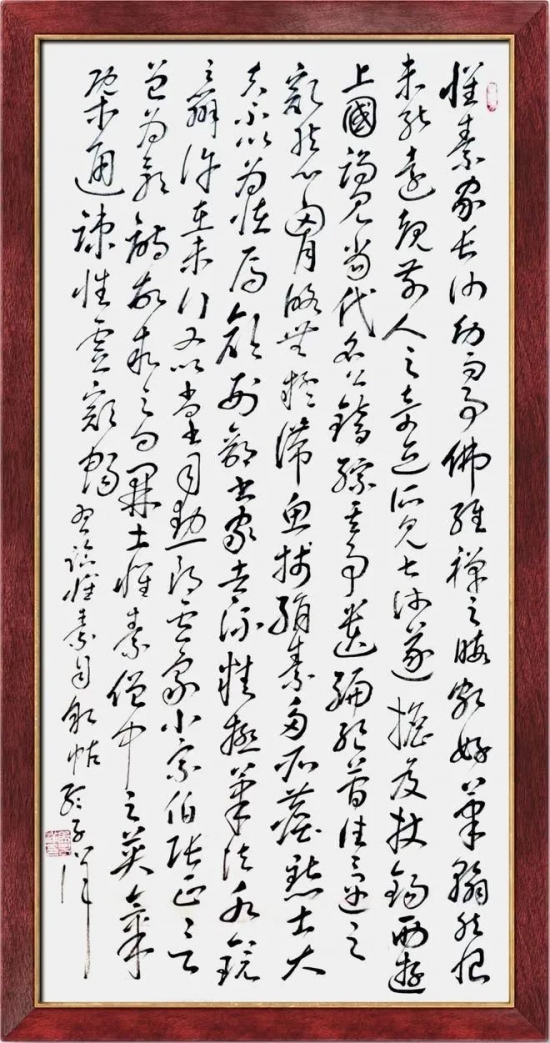 懷素家長沙幼而事佛經禪之暇頗好筆翰然恨
未能遠覩前人之奇迹所見甚淺遂擔笈杖錫西遊
上國謁見當代名公錯綜其事遺編絕簡往往遇之
豁然心胸略無疑滯魚牋絹素多所塵點士大
夫不以為怪焉顏刑部書家者流精極筆法水鏡
之辨許在末行又以尚書司勳郎盧象小宗伯張正言
曾為歌詩故敘之曰開士懷素僧中之英氣
概通疎性靈豁暢 右臨懷素自敘帖